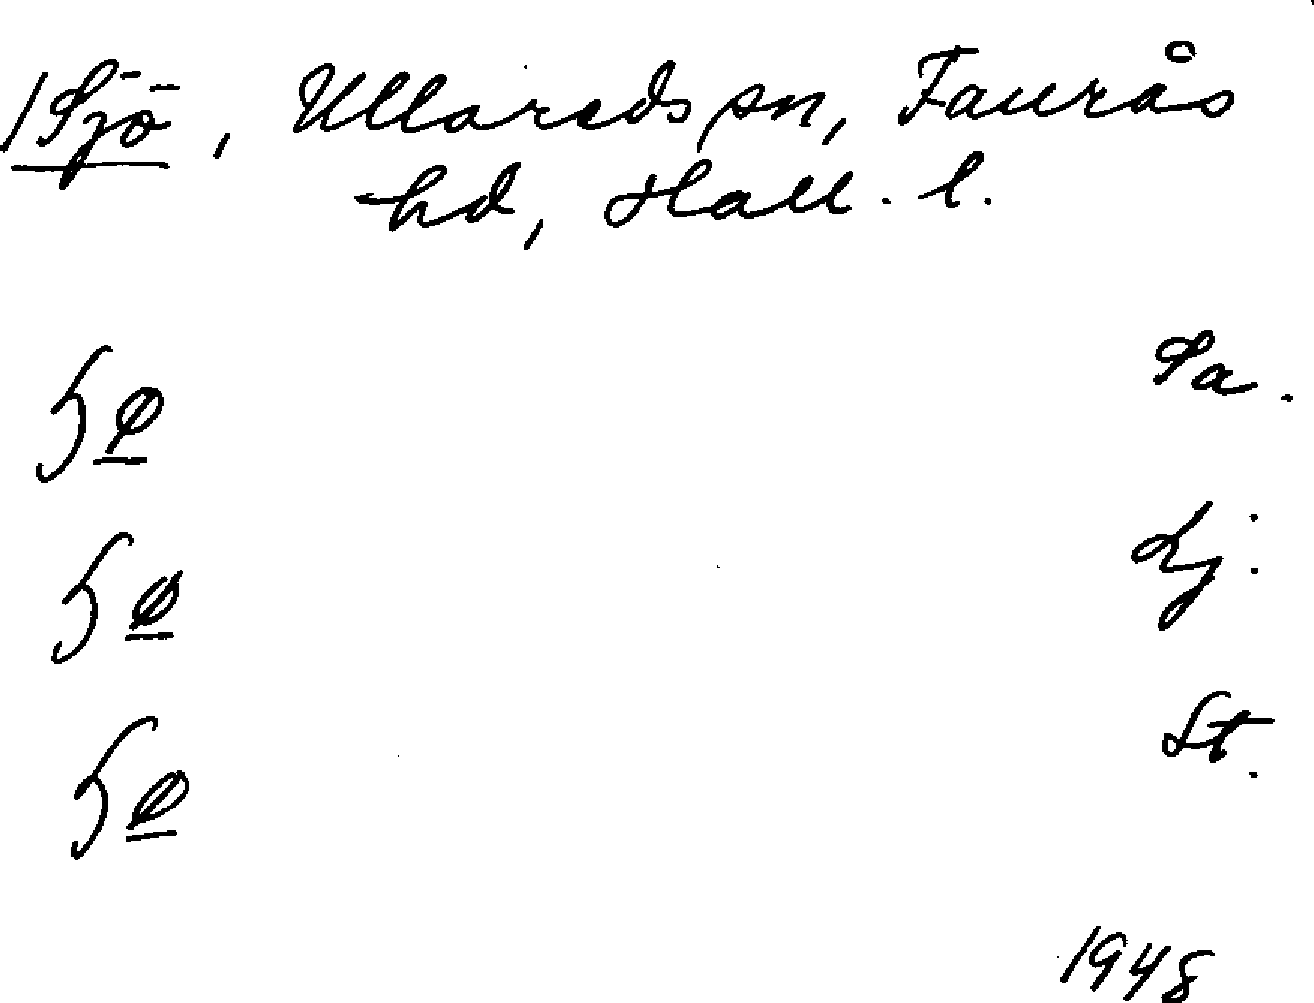 /Sjö, Ullareds sn, Faurås
hd, Hall. l.
ɧø Sa.
ɧø Lj.
ɧø St.
1948